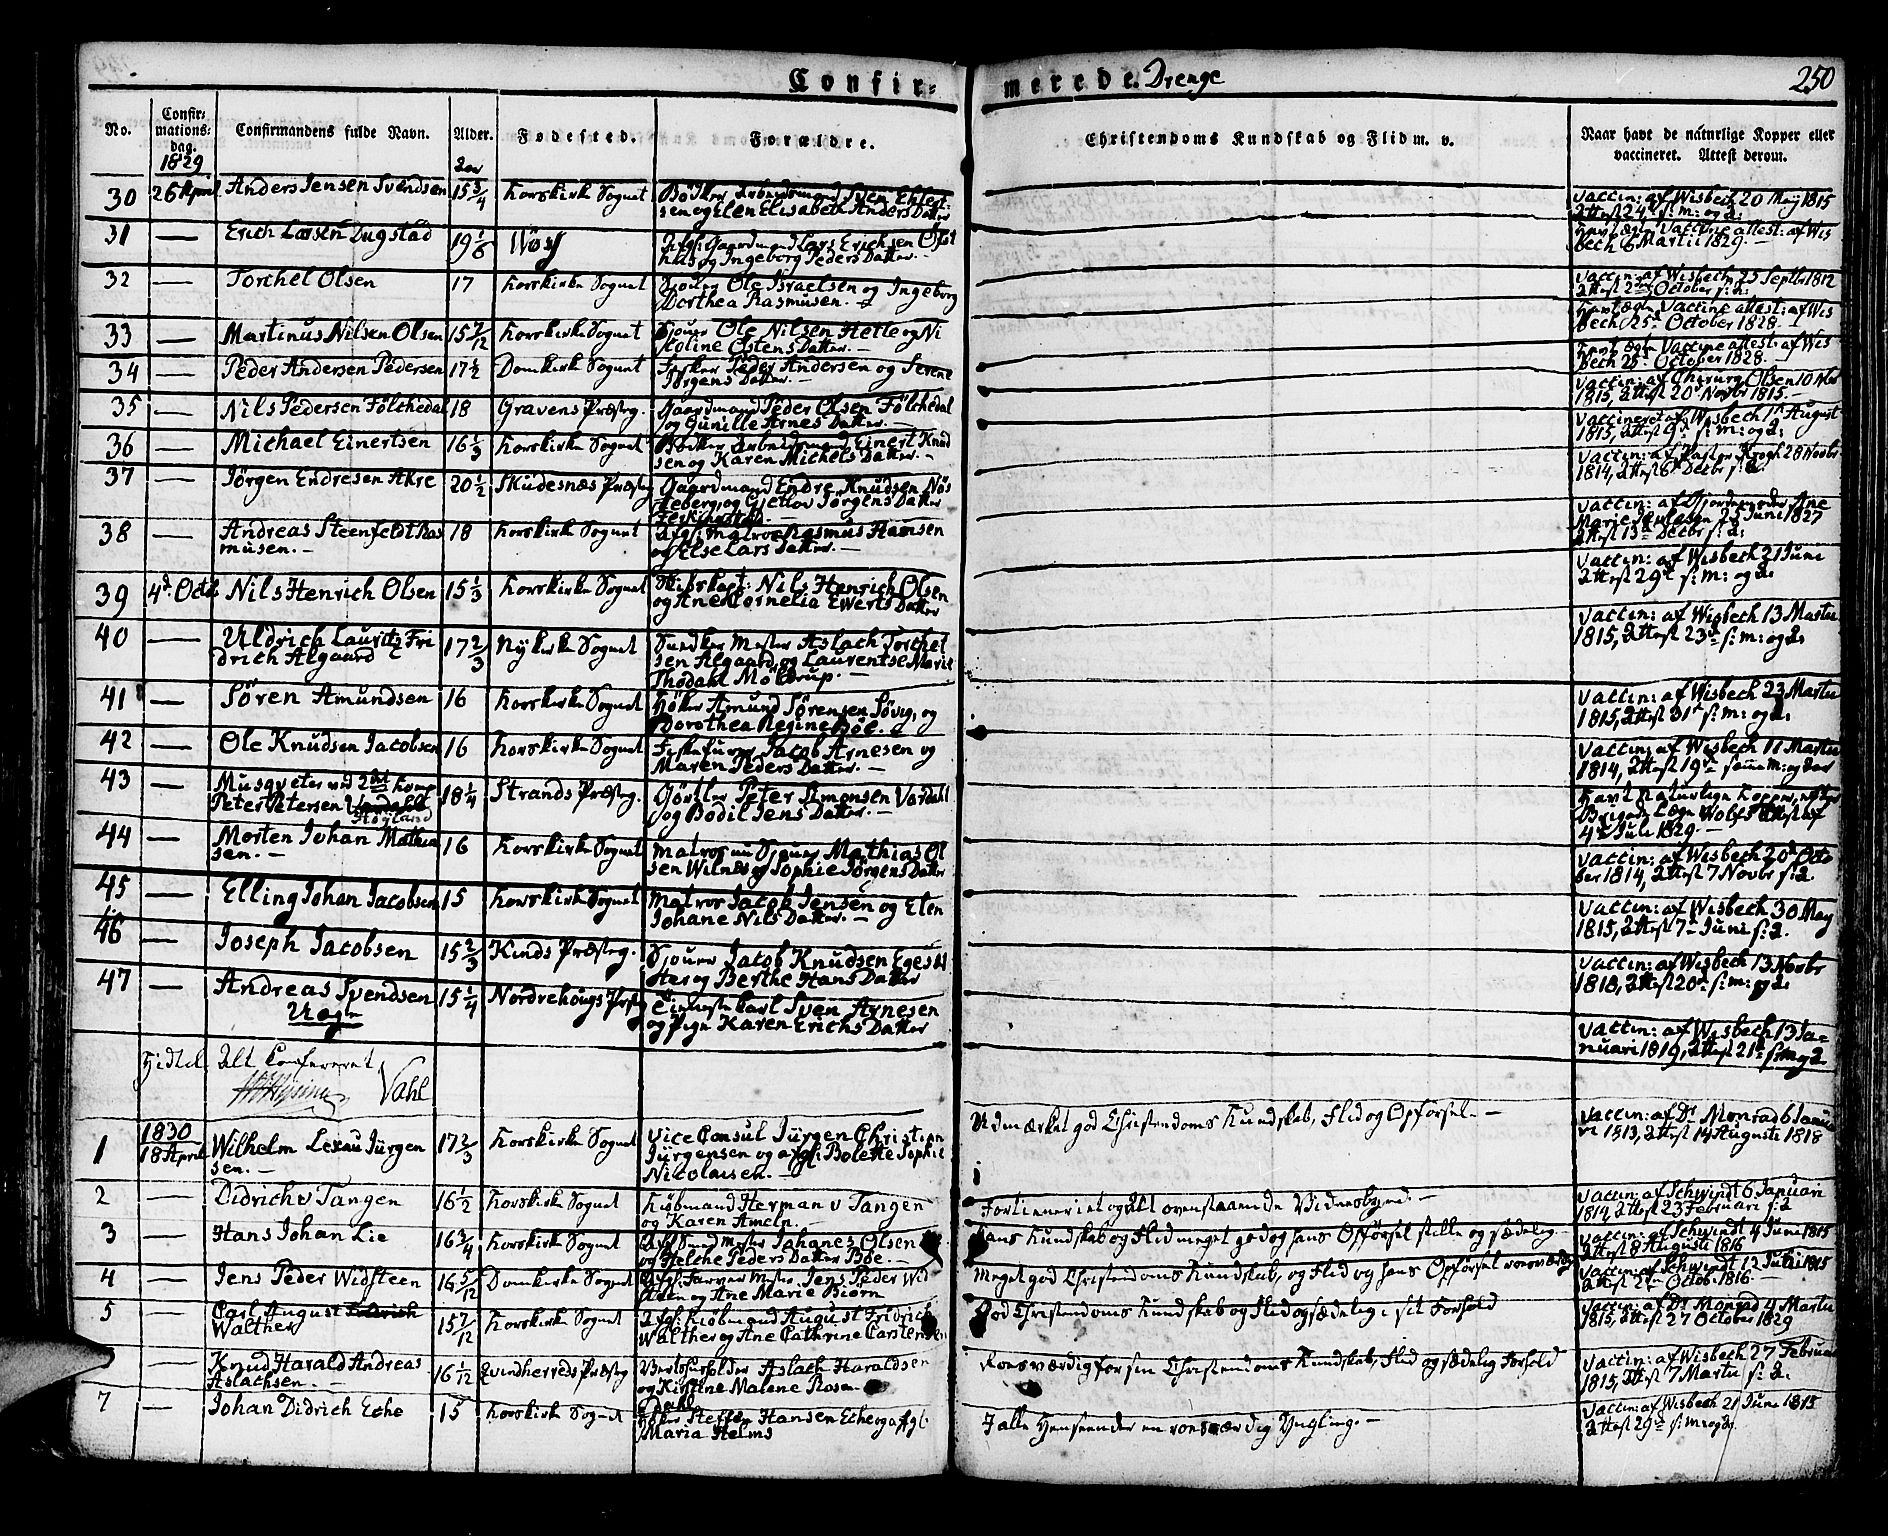 Confir- merede. Drenge 250
No. Confirmations-dag. Confirmandens fulde Navn. Alder. Fødested. Forældre. Christendoms Kundskab og Flid m. v. Naar havt de naturlige Kopper eller vaccineret. Attest derom.
1829
30 26 April Anders Jensen Svendsen 15 3/4 Korskirke Sognet Bödker Arbeidsmand Sven Ehlert-
sen og Elen Elisabeth Anders Datter
Vaccin: af Wisbech 20 May 1815
Attest 24 s: m: og A:
31 — Erich Larsen Dugstad 19 1/6 Woss Afg: Gaardmand Lars Erichsen
og Ingeborg Peders Datter. —
Vaccine attest: af Wis
bech 6 Martii 1829. —
32 — Torchel Olsen 17 Korskirke Sognet Sjouer Ole Israelsen og Ingeborg
Dorthea Rasmusen. —
Vaccin: af Wisbech 25 Septbr 1812
Attest 2den October s: A:
33 — Martinus Nilsen Olsen 15 7/12 Korskirke Sognet Sjouer Ole Nilsen Helle og Ni
koline Ostens Datter.
Vaccine attest: af Wis
bech 25 October 1828.
34 — Peder Andersen Pedersen 17 1/2 Domkirke Sognet Peder Andersen og Serene
Jörgens Datter. —
Vaccine attest: af Wis
bech 28 October 1828. —
35 — Nils Pedersen Fölchedal 18 Gravens Præsteg. Gaardmand Peder Olsen Fölchedal
og Gunille Arnes Datter —
Vaccin: af Chirurg Olsen 10 Novbr
1815, Attest 20 Novbr 1815. —
36 — Michael Einertsen 16 1/3 Korskirke Sognet Bödker Arbeidsmand Einert Knud
sen og Karen Michels Datter. —
Vaccineret af Wisbech 1 August
1815, Attest 9 s: m: og A:
37 — Jörgen Endresen Akre 20 1/2 Skudesnæs Præsteg Gaardmand Endre Knudsen
og Gjertlov Jörgens Datter
Vaccin: af Pastor Krogh 28 Novbr
1814, Attest 6 Decbr s: A
38 — Andreas Steenfeldt Ras
musen. — 18 Korskirke Sognet Afg: Matros Rasmus Hansen
og Else Lars Datter. —
Vaccin: af Jordemoder Ane
Marie 25 Juni 1827
Attest 13 Decbr s: A:
39 4d Octb Nils Henrich Olsen 15 1/3 Korskirke Sognet Skibskapt: Nils Henrich Olsen
og Ane Kornelia Ewerts Datter
Vaccin: af Wisbech 21 June
Attest 29 s: m: og A
40 — Uldrich Laurits Fri
drich Algaard 17 2/3 Nykirke Sognet Aslach Torchel
sen Algaard og Laurentse Marie
Thodahl Möldrup. —
Vaccin: af Wisbech 13 Martii
1815, Attest 23 s: m: og A
41 — Sören Amundsen 16 Korskirke Sognet Höker Amund Sörensen Sövig, og
Dorothea Regine Böe. —
Vaccin: af Wisbech 23 Martii
1815, Attest 31 s: m: og A
42 — Ole Knudsen Jacobsen 16 Korskirke Sognet Jacob Arnesen og
Maren Peders Datter. —
Vaccin: af Wisbech 11 Martii
1814, Attest 19 samme M: og Aar
43 — Musqveter ved 2det Komp
Peter Petersen Högland 18 1/4 Strands Præsteg. Görtler Peter Simonsen Vardahl
og Bodil Jens Datter. —
Havt naturlige Kopper,
Brigade Læge Wolfs Attest af
4 Juli 1829. —
44 — Morten Johan Mathia
sen. — 16 Korskirke Sognet Matros nu Sjouer Mathias Ol
sen Wilnes og Sophie Jörgens Datter
Vaccin: af Wisbech 20 Octo
ber 1814, Attest 7 Novbr s: A.
45 — Elling Johan Jacobsen 15 Korskirke Sognet Matros Jacob Jensen og Elen
Johane Nils Datter. —
Vaccin: af Wisbech 30 May
1815, Attest 7 Juni s: A.
46 — Joseph Jacobsen 15 2/3 Kinds Præsteg. Sjouer Jacob Knudsen
og Berthe Hans Datter
Vaccin: af Wisbech 13 Novbr
1818, Attest 20 s: m: og A
47 — Andreas Svendsen
Uægte 15 1/4 Nordrehougs Præsteg Sven Arnesen
og Pige Karen Erichs Datter
Vaccin: af Wisbech 13 Ja-
nuari 1819, Attest 21 s: m: og A
Hidtil Alt Confereret
Vahl
1830
1 18 April Wilhelm Lexau Jürgen
sen. — 17 2/3 Korskirke Sognet Vice Consul Jürgen Christian
Jürgensen og afgl: Bolette Sophie
Nicolaisen. —
Udmærket god Christendoms Kundskab, Flid og Opförsel. —
Vaccin: af Dr Monrad 6 Janua
ri 1813, Attest 14 Augusti 1818
2 — Didrich v Tangen 16 1/2 Korskirke Sognet Kjöbmand Herman v Tangen
og Karen Ameln. —
Fortiener i et og Alt ovenstaaende Vidnesbyrd. —
Vaccin: af Schwindt 6 Januari
1814, Attest 23 Februari s: A
3 — Hans Johan Lie 16 3/4 Korskirke Sognet Johanes Olsen
og Helche Peders Datter Böe. —
Hans Kundskab og Flid meget god og hans Opförsel stille og sædelig
Vaccin: af Schwindt 4 Juni 1815
Attest 8 Augusti 1816
4 — Jens Peder Widsteen 16 5/12 Domkirke Sognet Afg: Farver Mester Jens Peder Wid
steen og Ane Marie Biörn
Meget god Christendoms Kundskab, og Flid og hans Opförsel roesværdig
Vaccin: af Schwindt 12 Juli 1815
Attest 21 Octob: 1816. —
5 — Carl August
Walther 15 7/12 Korskirke Sognet Afg: Kjöbmand August Fridrich
Walther og Ane Cathrine Carstensen
God Christendoms Kundskab og Flid og sædelig i sit Forhold
Vaccin: af Dr Monrad 4 Martii
1815, Attest 27 October 1829
— Knud Harald Andreas
Aslachsen. — 16 1/12 Qvindherreds Præsteg Vertshusholder Aslach Haraldsen
og Kirstine Malene Rosen
Dahl
Roesværdig for sin Christendoms Kundskab, Flid og sædelig Forhold
Vaccin: af Wisbech 27 Februar
1815, Attest 7 Martii s: A.
7 — Johan Didrich Eche 15 Korskirke Sognet Höker Steffen Hansen Eche og afgl.
Maria Helms
I alle Henseender en roesværdig Yngling. —
Vaccin: af Wisbech 21 June 1815
Attest 29 s: m: og A